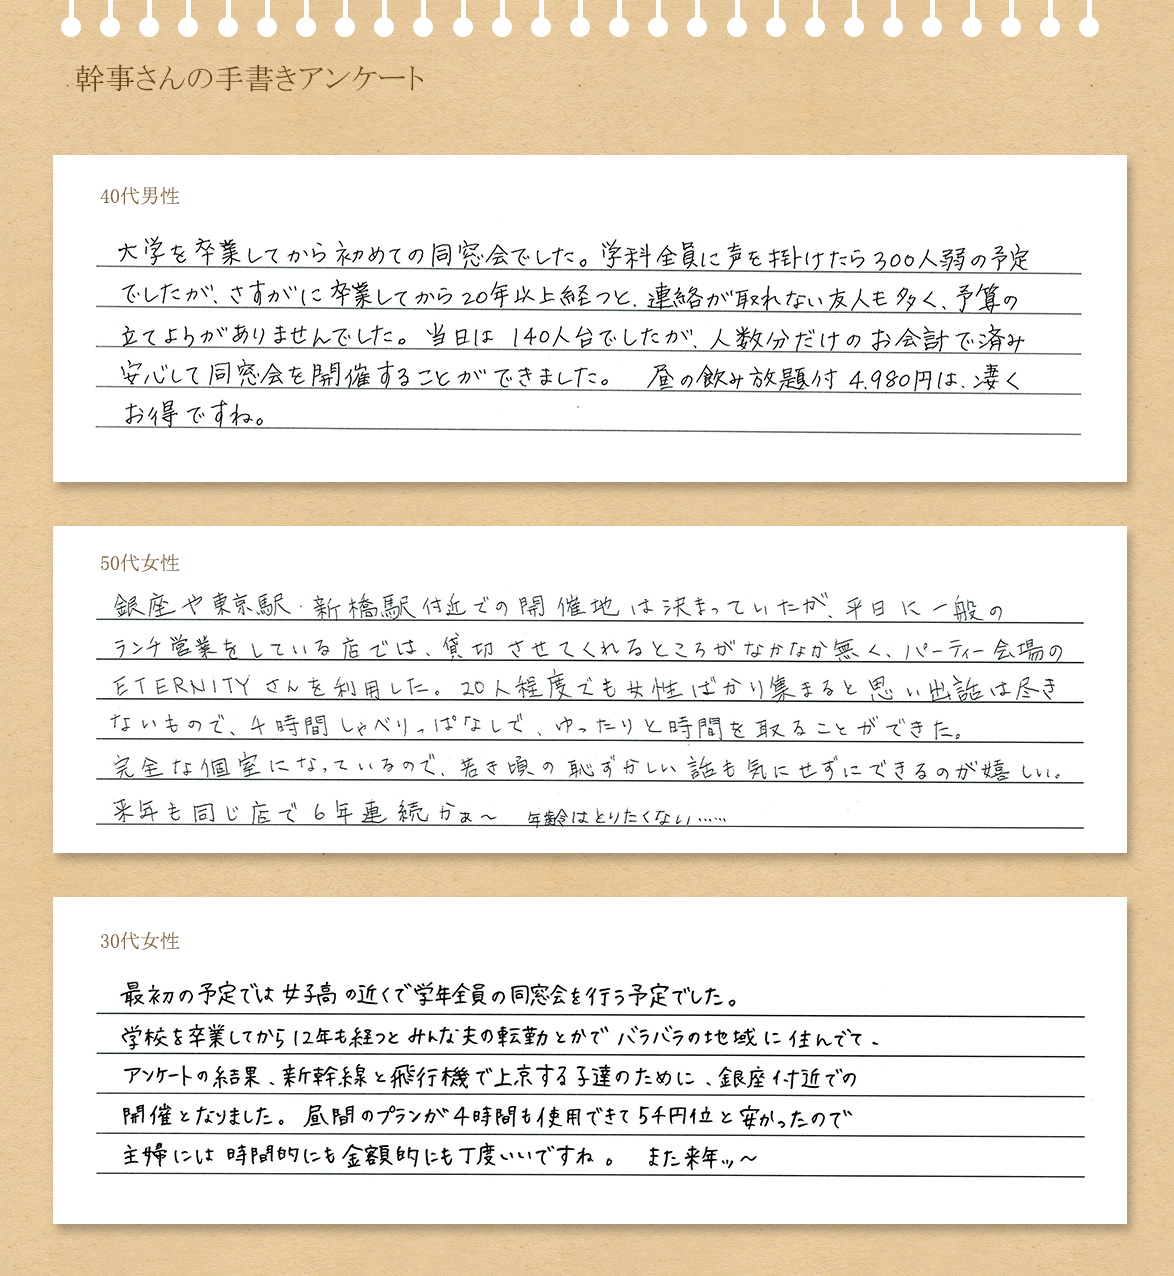 幹事さんの手書きアンケート
40代男性
大学を卒業してから初めての同窓会でした。学科全員に声を掛けたら300人弱の予定
でしたが、さすがに卒業してから20年以上経つと、連絡が取れない友人も多く、予算の
立てようがありませんでした。当日は140人台でしたが、人数分だけのお会計で済み
安心して同窓会を開催することができました。 昼の飲み放題付4.980円は、凄く
お得ですね。
50代女性
銀座や東京駅・新橋駅付近での開催地は決まっていたが、平日に一般の
ランチ営業をしている店では、貸切させてくれるところがなかなか無く、パーティー会場の
ETERNITYさんを利用した。20人程度でも女性ばかり集まると思い出話は尽き
ないもので、4時間しゃべりっぱなしで、ゆったりと時間を取ることができた。
完全な個室になっているので、若き頃の恥ずかしい話も気にせずにできるのが嬉しい。
来年も同じ店で6年連続かぁ〜 年齢はとりたくない……
30代女性
最初の予定では女子高の近くで学年全員の同窓会を行う予定でした。
学校を卒業してから12年も経つとみんな夫の転勤とかでバラバラの地域に住んでて、
アンケートの結果、新幹線と飛行機で上京する子達のために、銀座付近での
開催となりました。昼間のプランが4時間も使用できて5千円位と安かったので
主婦には時間的にも金額的にも丁度いいですね。 また来年ッ〜